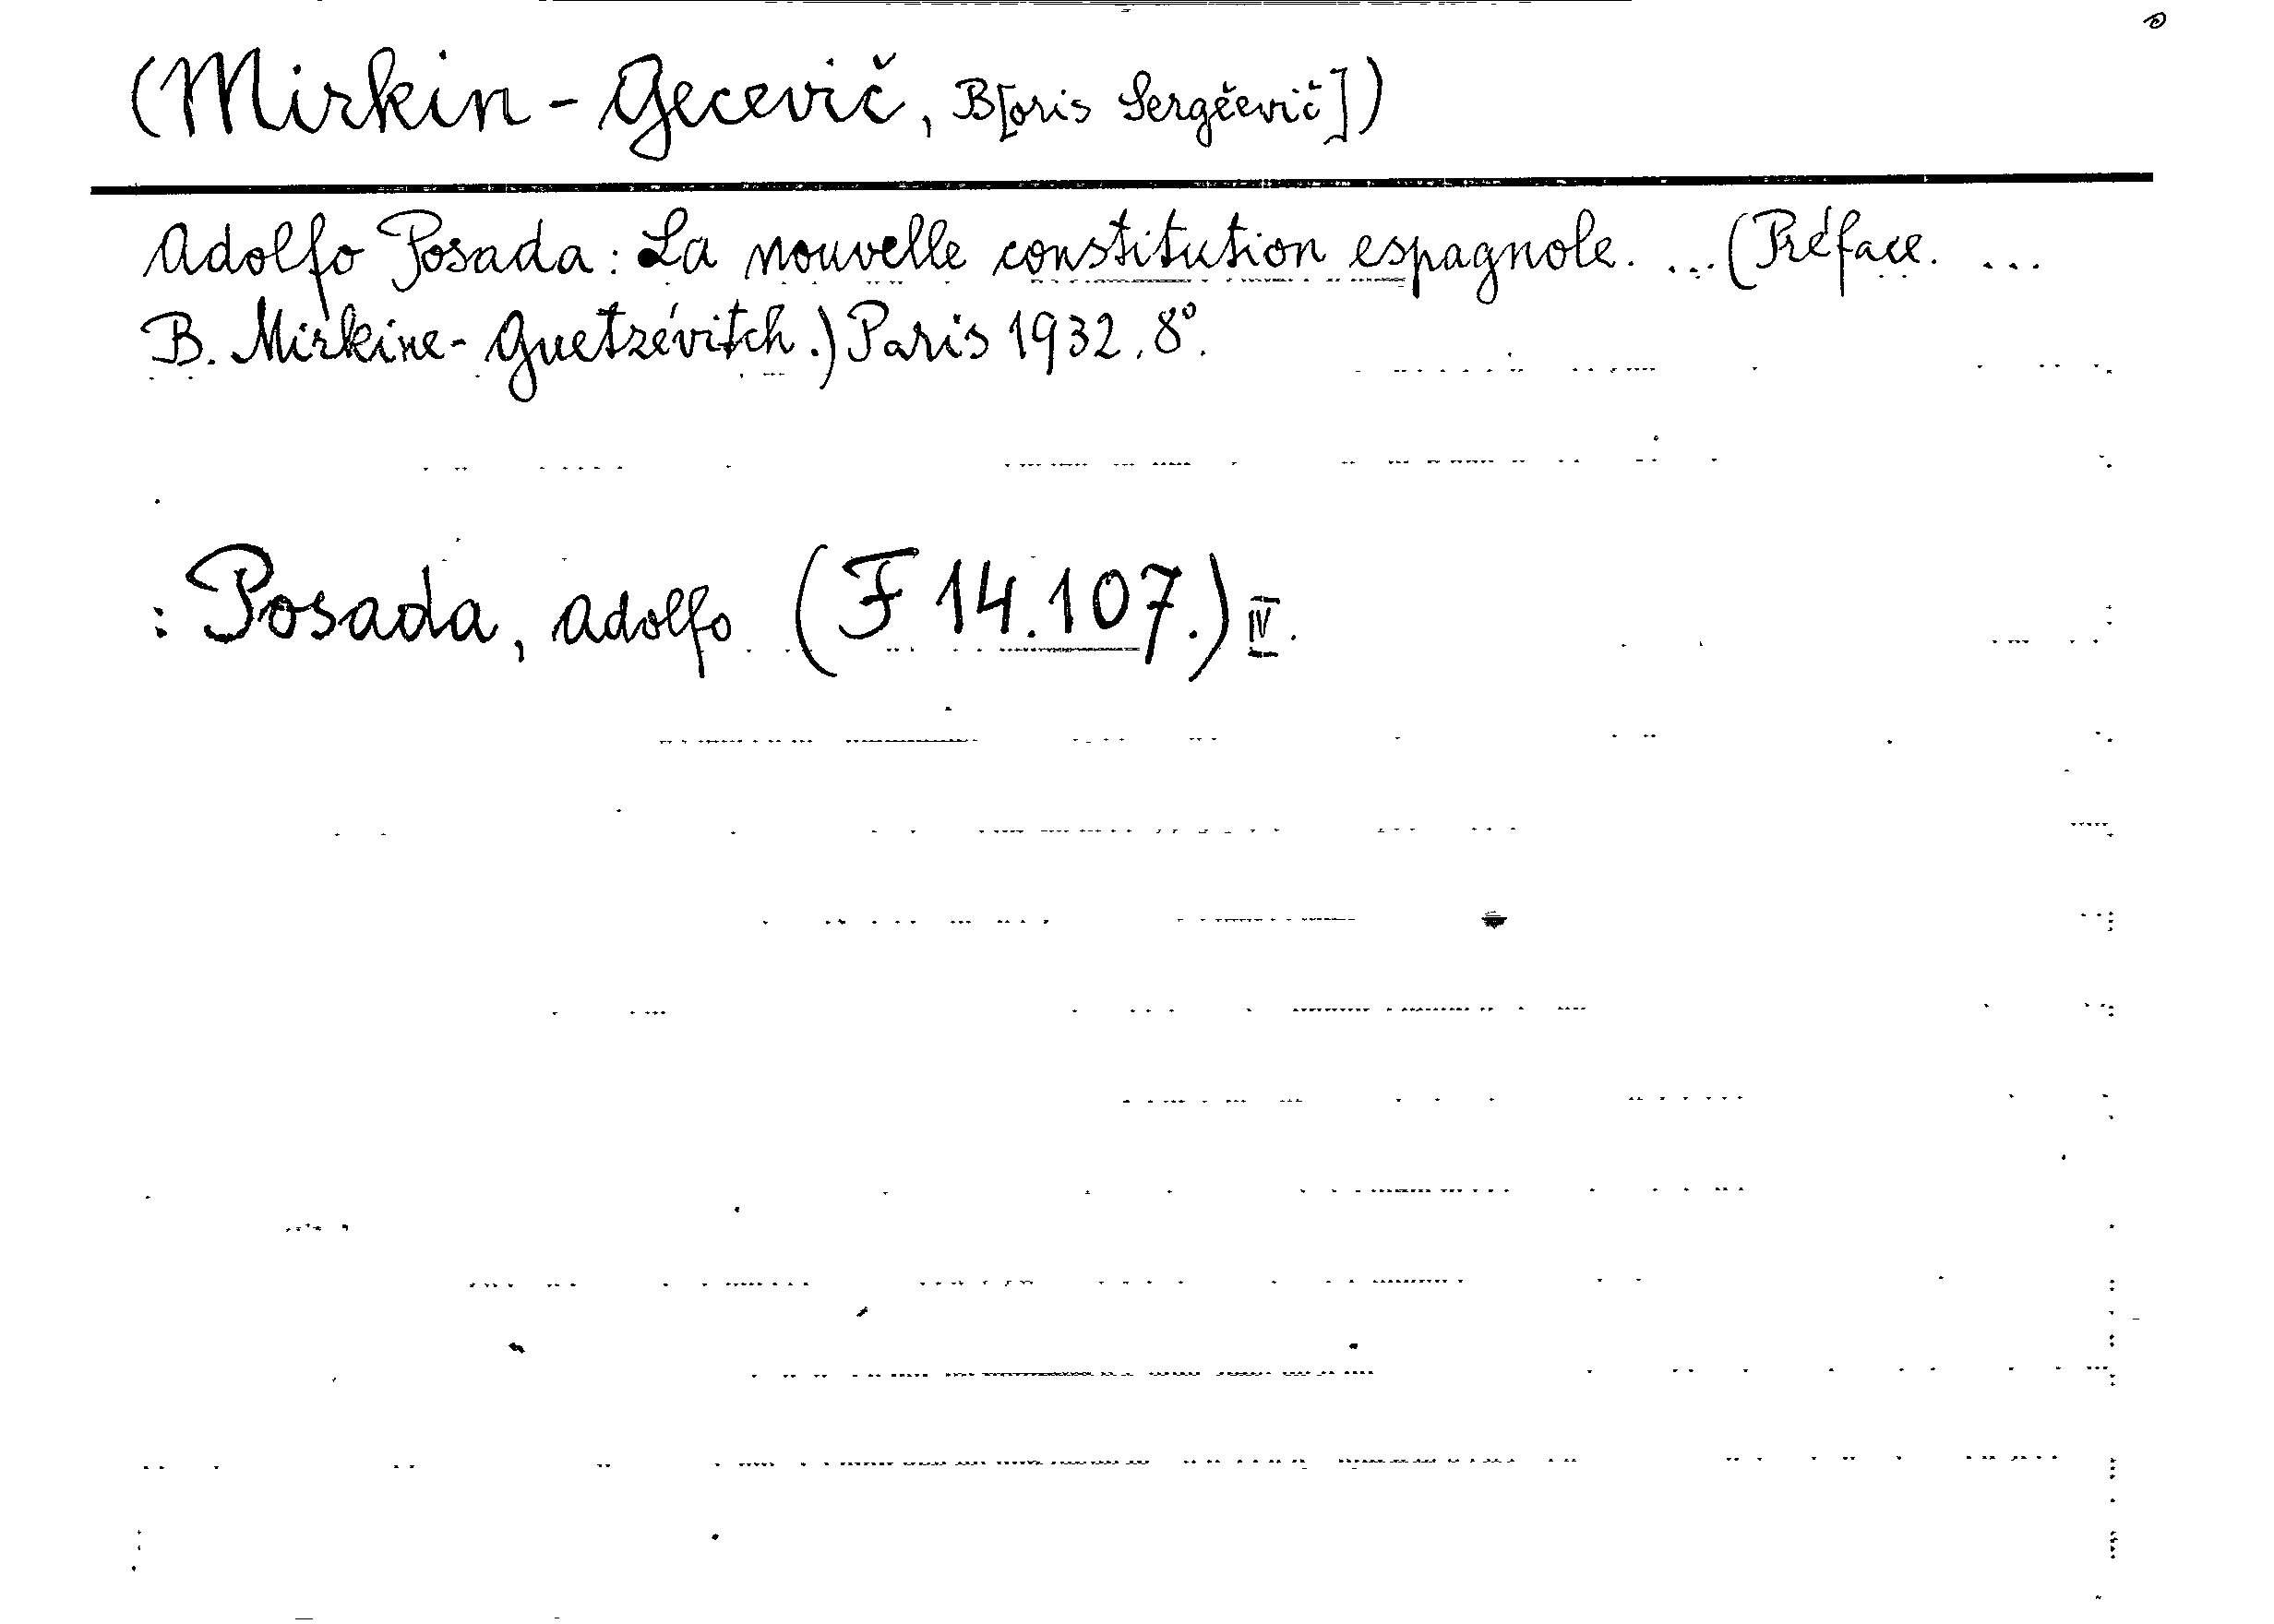 (Mirkin-Gecevič, B[oris Sergěevič])
Adolfo Posada: La nouvelle constitution espagnole. ... (Préface. ...
B. Mirkine-Guetzévitch.) Paris 1932. 8°.
: Posada, Adolfo (F 14.107.) IV.